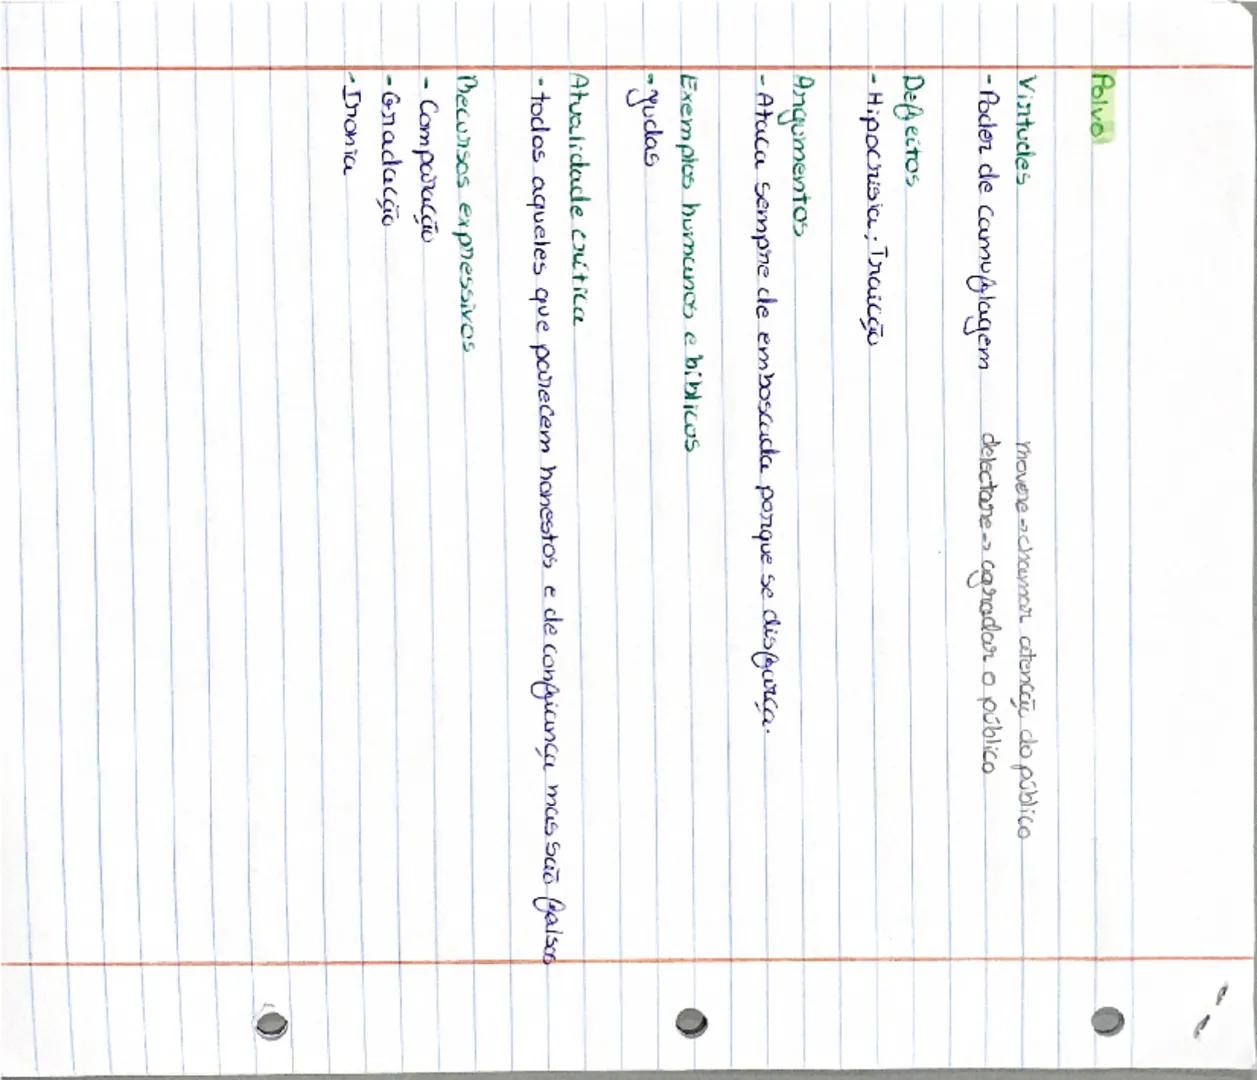 Polvo
Virtudes
- Poder de camuflagem
movere → chamar atenção do público
delectare → agradar o público
Defeitos
- Hipocrisia; Traição
Argumentos
- Ataca sempre de emboscada porque se disfarça.
Exemplos humanos e bíblicos
- Judas
Atualidade crítica
- todos aqueles que parecem honestos e de confiança mas são falsos
Recursos expressivos
- Comparação
- Gradação
- Ironia